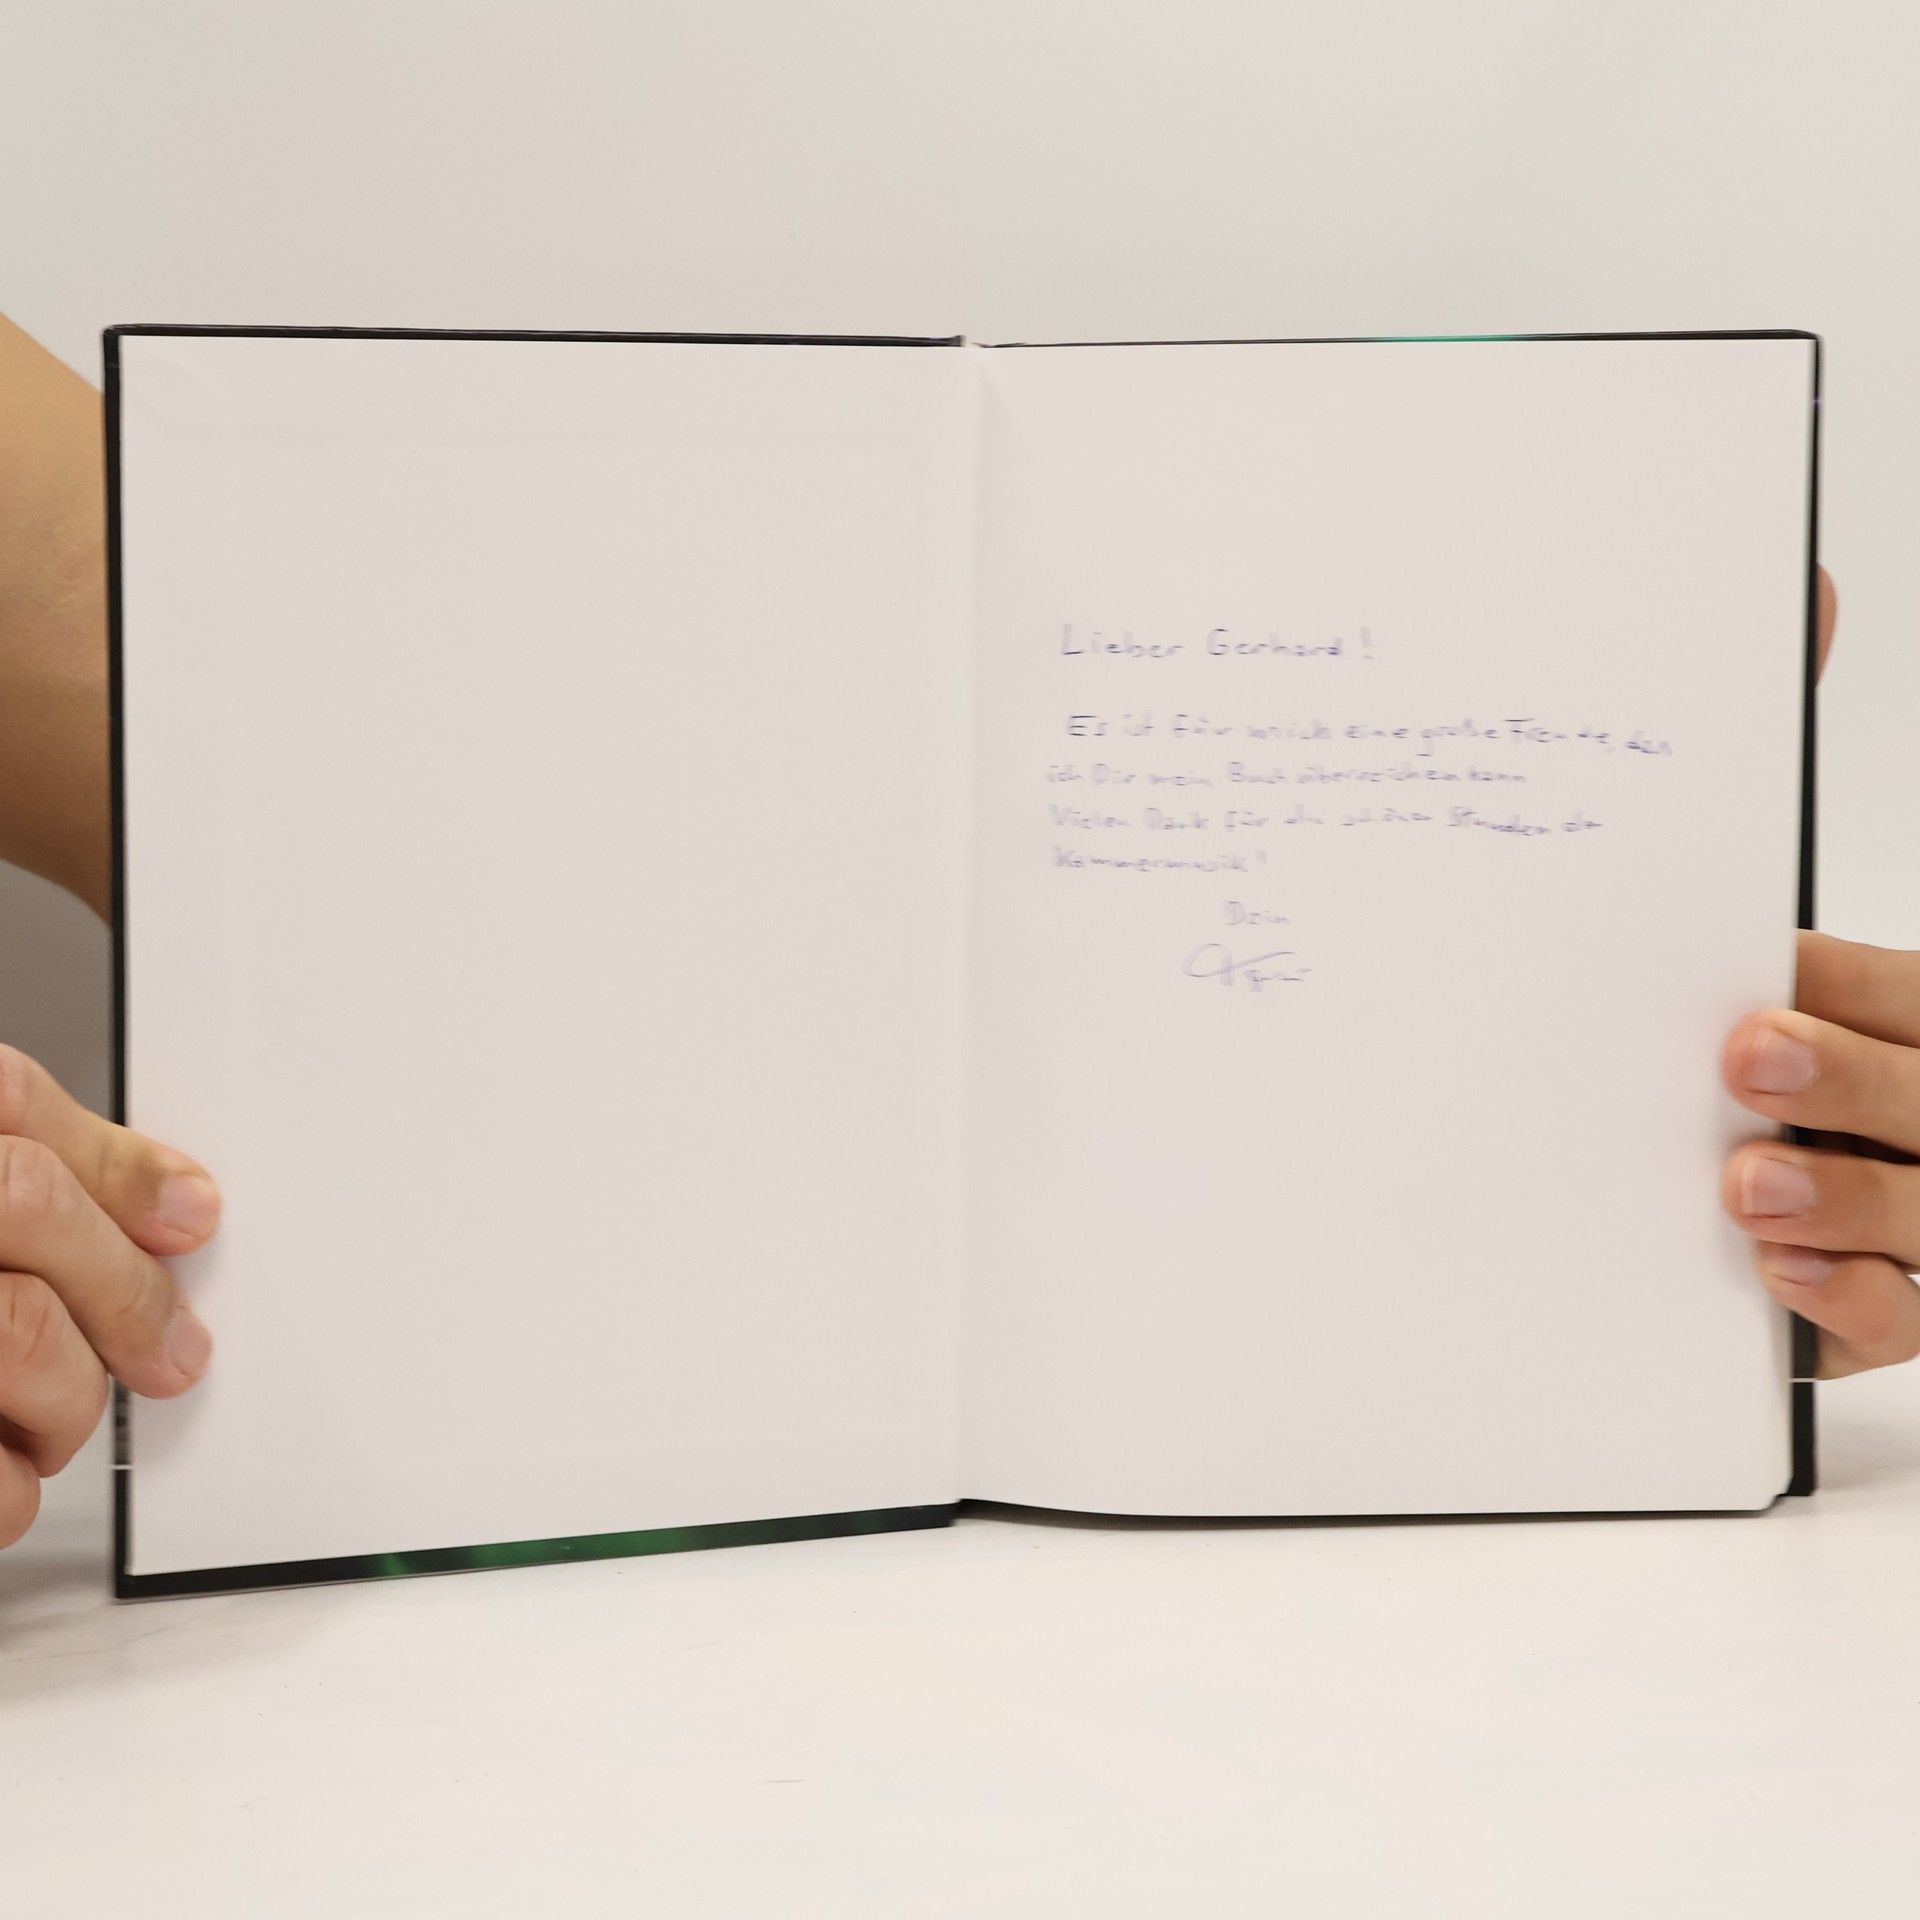 Lieber Gerhard!
Es ist für mich eine große Freude, das
ich Dir mein Buch überreichen kann
Vielen Dank für die schönen Stunden der
Kammermusik!
Dein